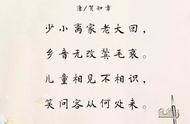 唐/贺知章
少小离家老大回，
乡音无改鬓毛衰。
儿童相见不相识，
笑问客从何处来。